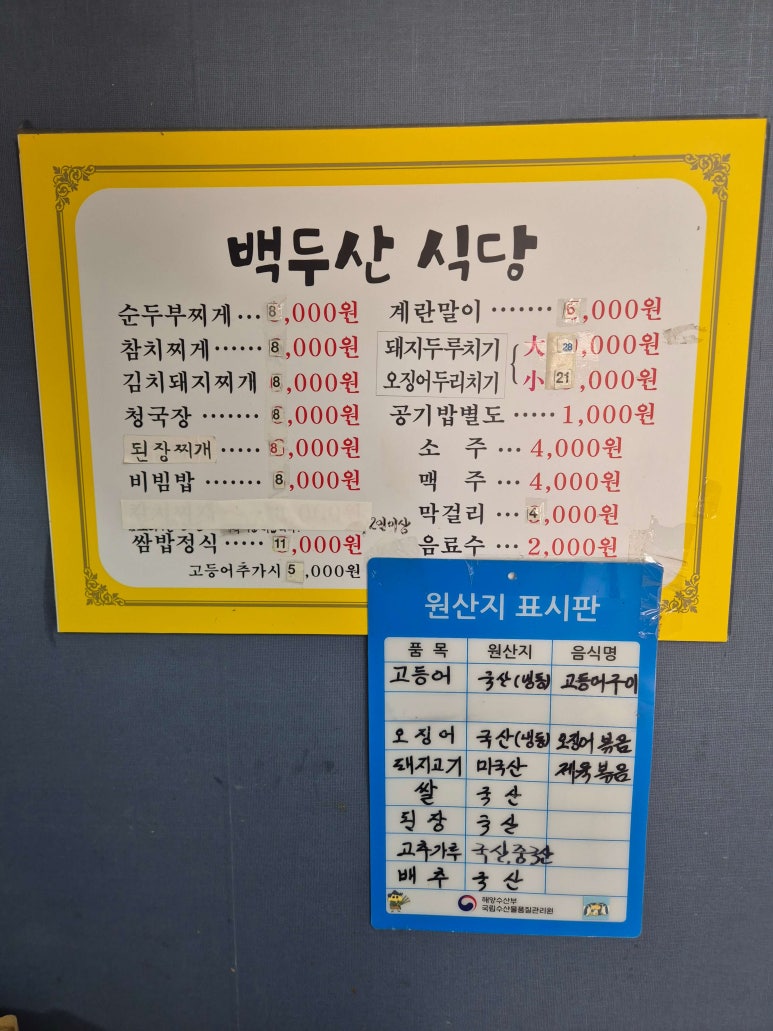 백두산 식당
순두부찌게 ··· 8,000원
참치찌게 ······ 8,000원
김치돼지찌개 8,000원
청국장 ······· 8,000원
된장찌개 ····· 8,000원
비빔밥 ······· 8,000원
2인이상
쌈밥정식 ····· 11,000원
고등어추가시 5,000원
계란말이 ······· 6,000원
돼지두루치기 { 大 28,000원
오징어두리치기 小 21,000원
공기밥별도 ····· 1,000원
소 주 ··· 4,000원
맥 주 ··· 4,000원
막걸리 ··· 4,000원
음료수 ··· 2,000원
원산지 표시판
품 목 원산지 음식명
고등어 국산(냉동) 고등어구이
오징어 국산(냉동) 오징어볶음
돼지고기 미국산 제육볶음
쌀 국산
된장 국산
고추가루 국산,중국산
배추 국산
해양수산부
국립수산물품질관리원